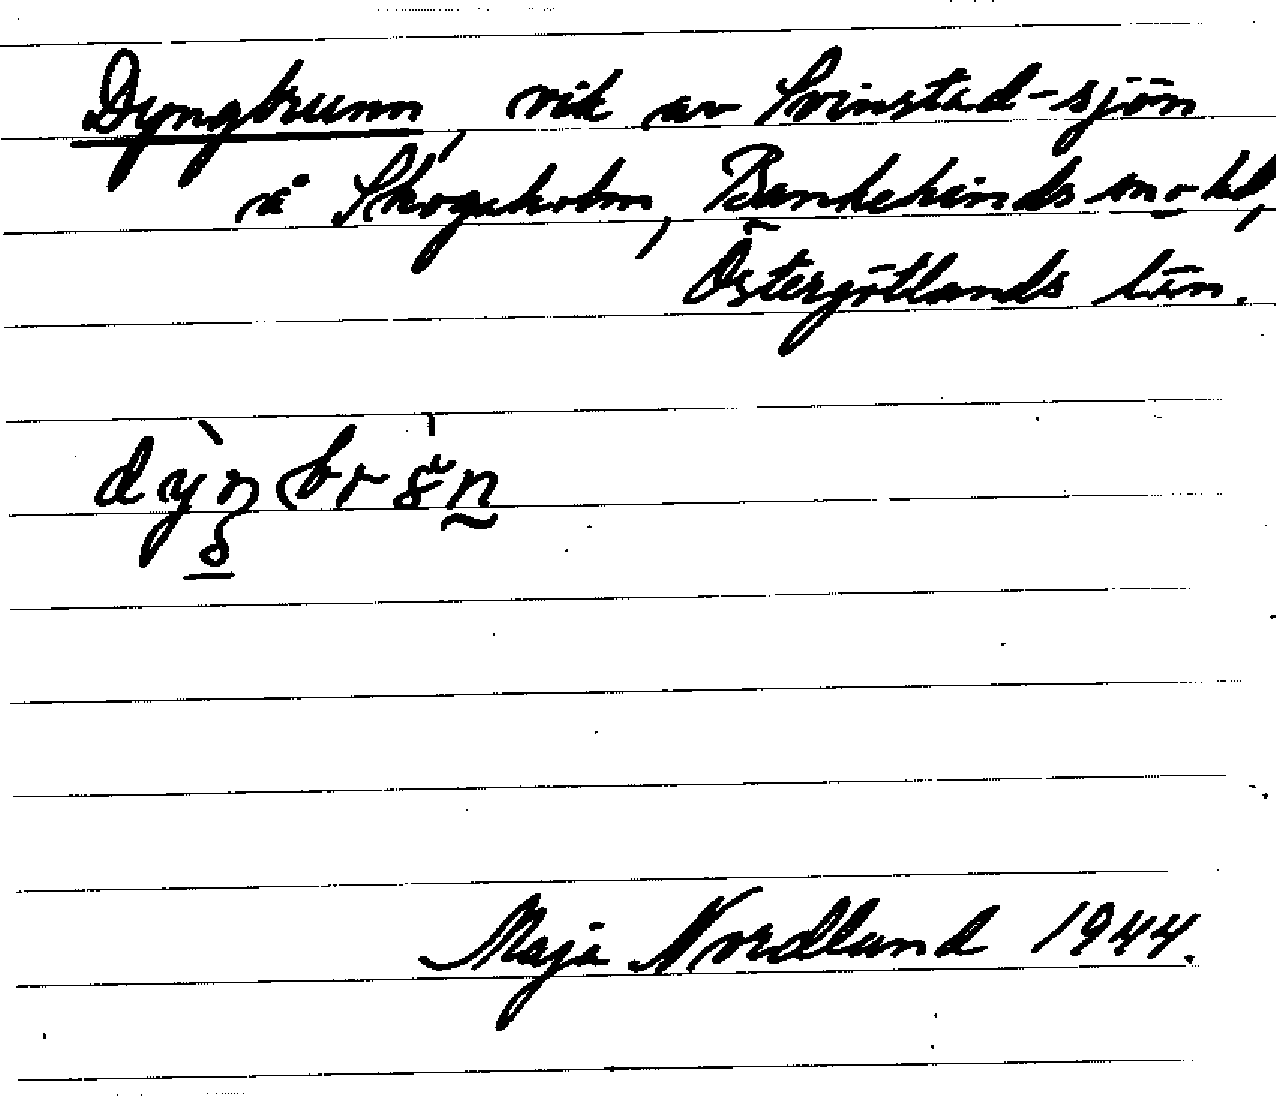 Dyngbrunn, vik av Svinstad-sjön
å Skogsholm, Bankekinds sn o hd,
Östergötlands län.
Maja Nordlund 1944.